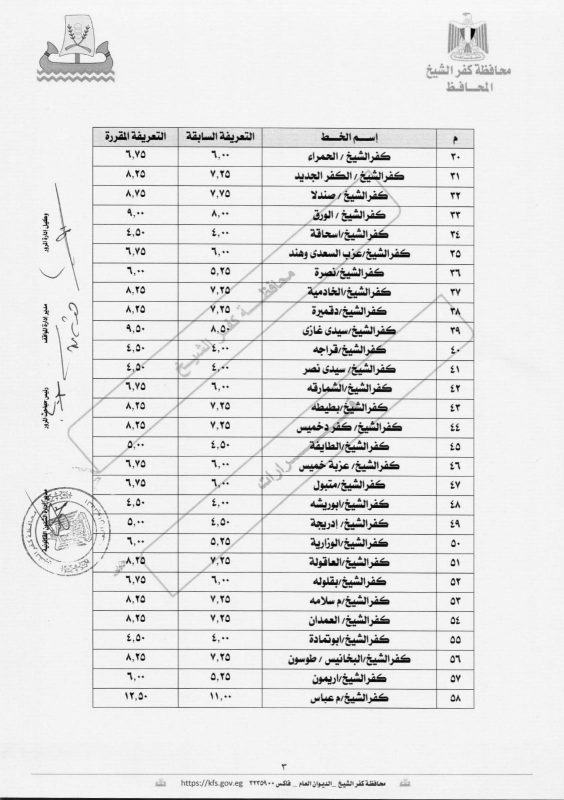 محافظة كفر الشيخ
المحافظ
م إسم الخط التعريفة السابقة التعريفة المقررة
٣٠ كفرالشيخ / الحمراء ٦,٠٠ ٦,٧٥
٣١ كفرالشيخ / الكفر الجديد ٧,٢٥ ٨,٢٥
٣٢ كفرالشيخ / صندلا ٧,٧٥ ٨,٧٥
٣٣ كفرالشيخ / الورق ٨,٠٠ ٩,٠٠
٣٤ كفرالشيخ/اسحاقة ٤,٠٠ ٤,٥٠
٣٥ كفرالشيخ/عزب السعدى وهند ٦,٠٠ ٦,٧٥
٣٦ كفرالشيخ/نصرة ٥,٢٥ ٦,٠٠
٣٧ كفرالشيخ/الخادمية ٧,٢٥ ٨,٢٥
٣٨ كفرالشيخ/دقميرة ٧,٢٥ ٨,٢٥
٣٩ كفرالشيخ/سيدى غازى ٨,٥٠ ٩,٥٠
٤٠ كفرالشيخ/قراجه ٤,٠٠ ٤,٥٠
٤١ كفرالشيخ/ سيدى نصر ٤,٠٠ ٤,٥٠
٤٢ كفرالشيخ/الشمارقه ٦,٠٠ ٦,٧٥
٤٣ كفرالشيخ/بطيطه ٧,٢٥ ٨,٢٥
٤٤ كفرالشيخ/ كفر دخميس ٧,٢٥ ٨,٢٥
٤٥ كفرالشيخ/الطايفة ٤,٥٠ ٥,٠٠
٤٦ كفرالشيخ/ عزبة خميس ٦,٠٠ ٦,٧٥
٤٧ كفرالشيخ/متبول ٦,٠٠ ٦,٧٥
٤٨ كفرالشيخ/ابوريشه ٤,٠٠ ٤,٥٠
٤٩ كفرالشيخ/ إدريجة ٤,٥٠ ٥,٠٠
٥٠ كفرالشيخ/الوزارية ٥,٢٥ ٦,٠٠
٥١ كفرالشيخ/العاقولة ٧,٢٥ ٨,٢٥
٥٢ كفرالشيخ/بقلوله ٦,٠٠ ٦,٧٥
٥٣ كفرالشيخ/م سلامه ٧,٢٥ ٨,٢٥
٥٤ كفرالشيخ/ العمدان ٧,٢٥ ٨,٢٥
٥٥ كفرالشيخ/ابوتمادة ٤,٠٠ ٤,٥٠
٥٦ كفرالشيخ/البخانيس / طوسون ٧,٢٥ ٨,٢٥
٥٧ كفرالشيخ/اريمون ٥,٢٥ ٦,٠٠
٥٨ كفرالشيخ/م عباس ١١,٠٠ ١٢,٥٠
وكيل ادارة المرور
مدير ادارة المواقف
محافظة كفر الشيخ
٣
محافظة كفر الشيخ _ الديوان العام _ فاكس ٣٢٣٥٩٠٠ https://kfs.gov.eg